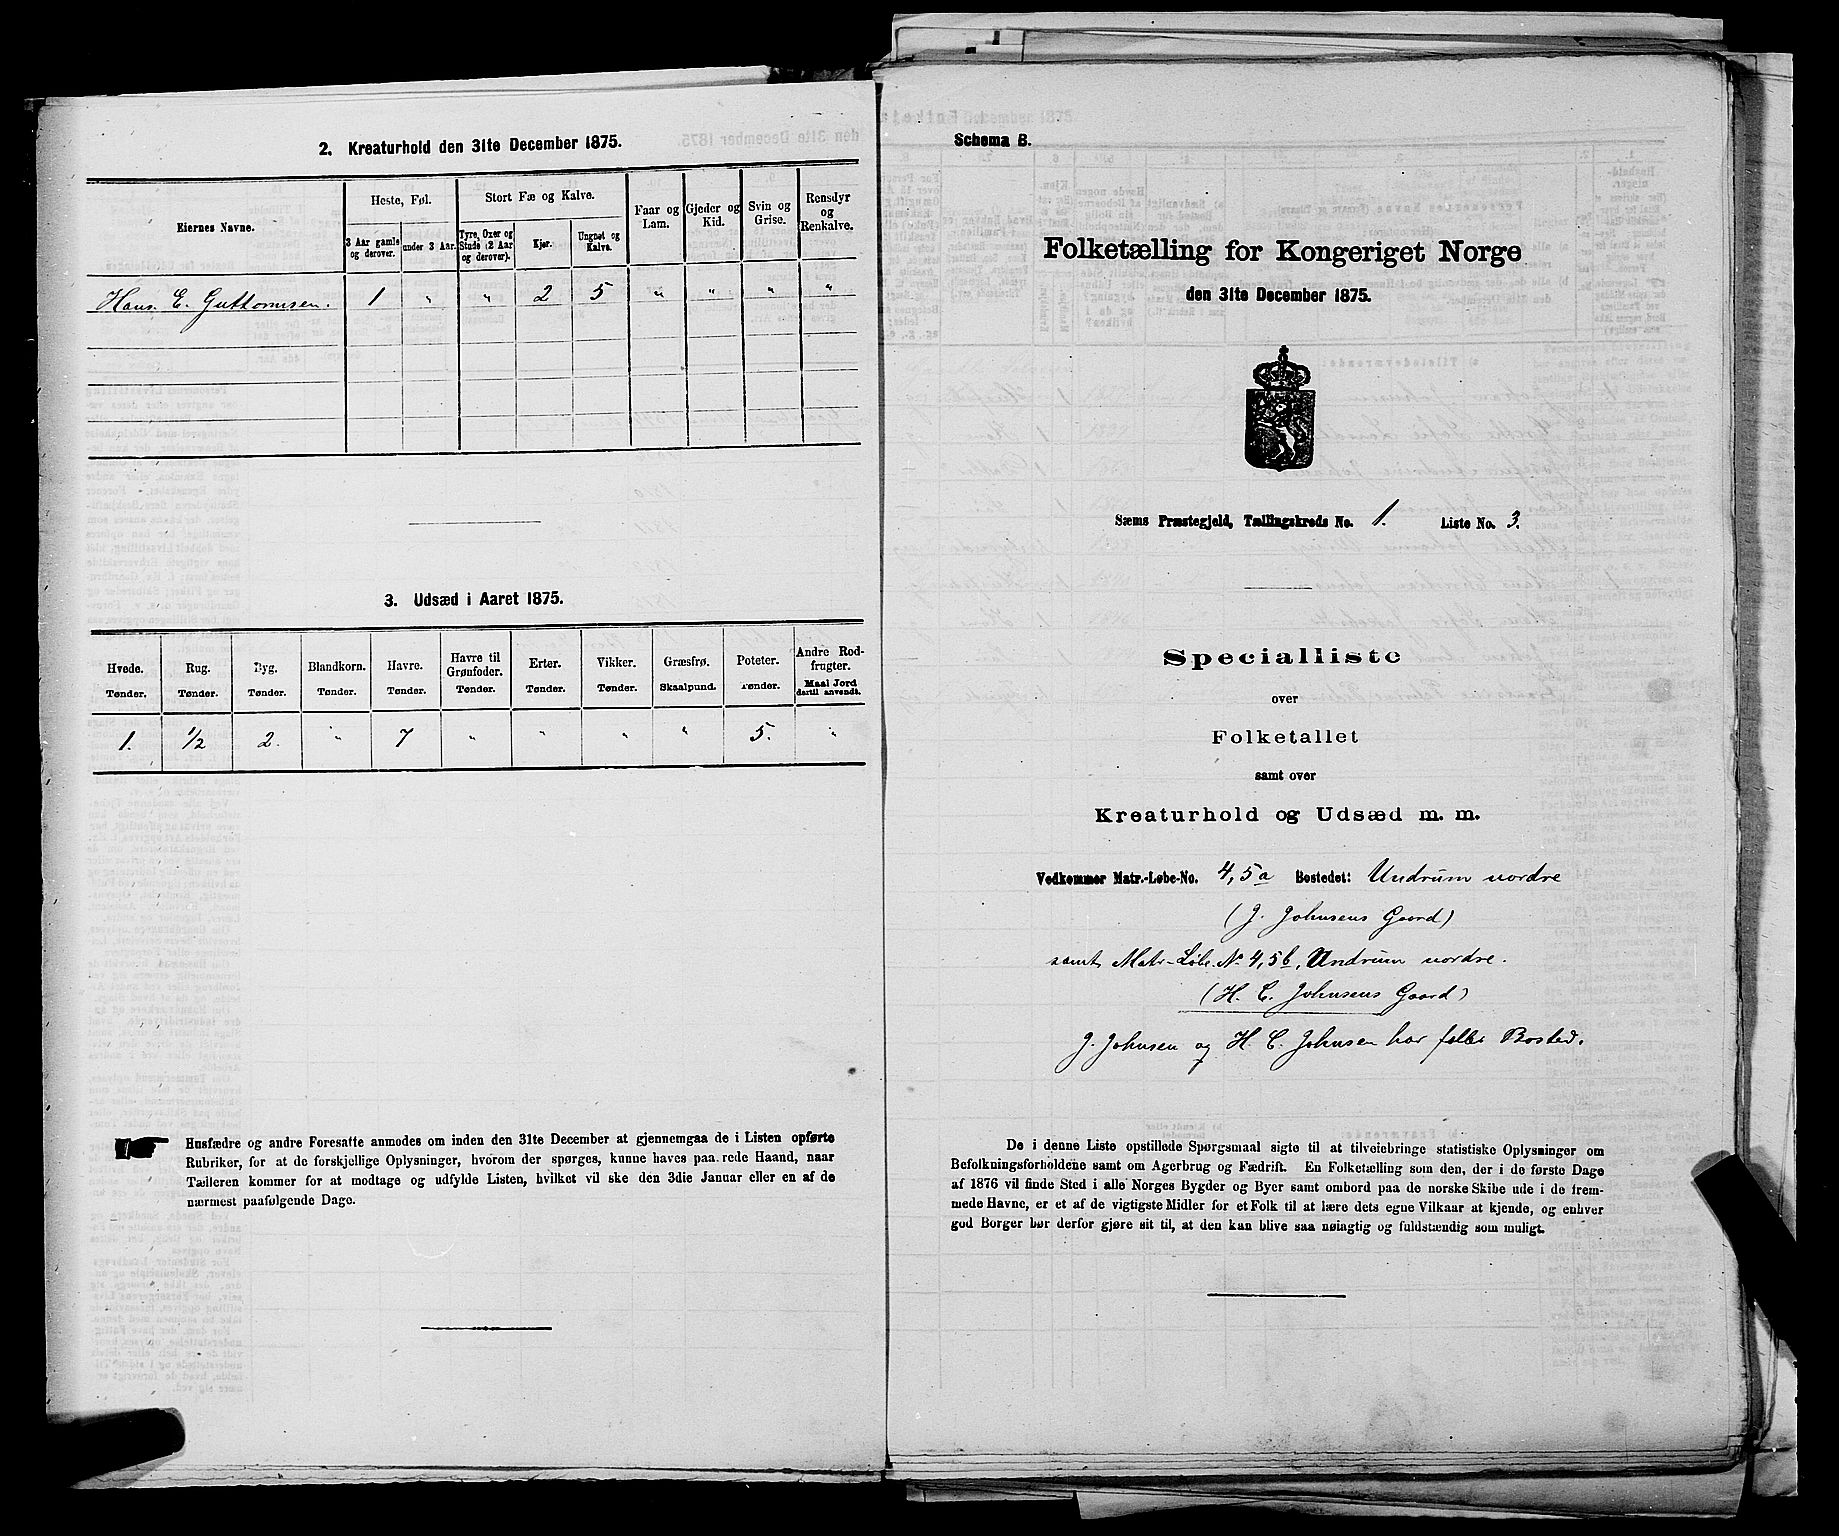 2. Kreaturhold den 31te December 1875.
Eiernes Navne.
Heste, Føl.
Stort Fæ og Kalve.
Faar og Lam.
Gjeder og Kid.
Svin og Grise.
Rensdyr og Renkalve.
3 Aar gamle og derover.
under 3 Aar.
Tyre, Oxer og Stude (2 Aar og derover).
Kjør.
Ungnøt og Kalve.
Hans E. Guttormsen. 1 " " 2 5 " " " "
3. Udsæd i Aaret 1875.
Hvede. Rug. Byg. Blandkorn. Havre. Havre til Grønfoder. Erter. Vikker. Græsfrø. Poteter. Andre Rodfrugter.
Tønder. Tønder. Tønder. Tønder. Tønder. Tønder. Tønder. Tønder. Skaalpund. Tønder. Maal Jord dertil anvendt.
1. 1/2 2. " 7 " " " " 5. "
Husfædre og andre Foresatte anmodes om inden den 31te December at gjennemgaa de i Listen opførte
Rubriker, for at de forskjellige Oplysninger, hvorom der spørges, kunne haves paa rede Haand, naar
Tælleren kommer for at modtage og udfylde Listen, hvilket vil ske den 3die Januar eller en af de
nærmest paafølgende Dage.
Schema B.
Folketælling for Kongeriget Norge
den 31te December 1875.
Sæms Præstegjeld, Tællingskreds No. 1. Liste No. 3.
Specialliste
over
Folketallet
samt over
Kreaturhold og Udsæd m. m.
Vedkommer Matr.-Løbe-No. 4, 5a Bostedet: Undrum nordre
(J. Johnsens Gaard)
samt Matr-Løbe-No 4, 5b, Undrum nordre.
(H. C. Johnsens Gaard)
J. Johnsen og H. C. Johnsen har fælles Bosted.
De i denne Liste opstillede Spørgsmaal sigte til at tilveiebringe statistiske Oplysninger om
Befolkningsforholdene samt om Agerbrug og Fædrift. En Folketælling som den, der i de første Dage
af 1876 vil finde Sted i alle Norges Bygder og Byer samt ombord paa de norske Skibe ude i de frem-
mede Havne, er et af de vigtigste Midler for et Folk til at lære dets egne Vilkaar at kjende, og enhver
god Borger bør derfor gjøre sit til, at den kan blive saa nøiagtig og fuldstændig som muligt.